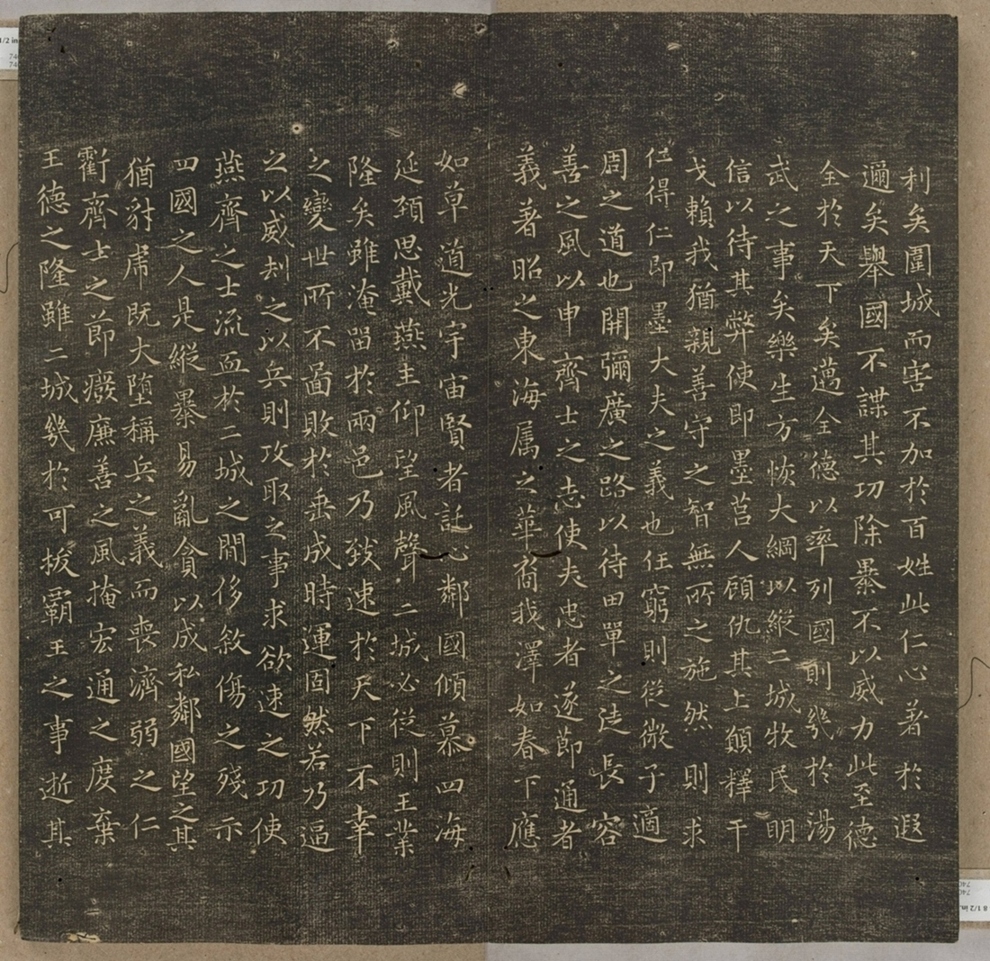 利矣圍城而害不加於百姓此仁心著於遐
邇矣舉國不謀其功除暴不以威力此至德
全於天下矣邁全德以率列國則幾於湯
武之事矣樂生方恢大綱以縱二城牧民明
信以待其弊使即墨莒人顧仇其上願釋干
戈賴我猶親善守之智無所之施然則求
仁得仁即墨大夫之義也任窮則從微子適
周之道也開彌廣之路以待田單之徒長容
善之風以申齊士之志使夫忠者遂節通者
義著昭之東海属之華裔我澤如春下應
如草道光宇宙賢者託心鄰國傾慕四海
延頸思戴燕主仰望風聲二城必從則王業
隆矣雖淹留於兩邑乃致速於天下不幸
之變世所不啚敗於垂成時運固然若乃逼
之以威刼之以兵則攻取之事求欲速之功使
燕齊之士流血於二城之間侈敘傷之殘示
四國之人是縱暴易亂貪以成私鄰國望之其
猶豺虎既大堕稱兵之義而喪濟弱之仁
虧齊士之節癈廉善之風掩宏通之度棄
王德之隆雖二城幾於可拔霸王之事逝其